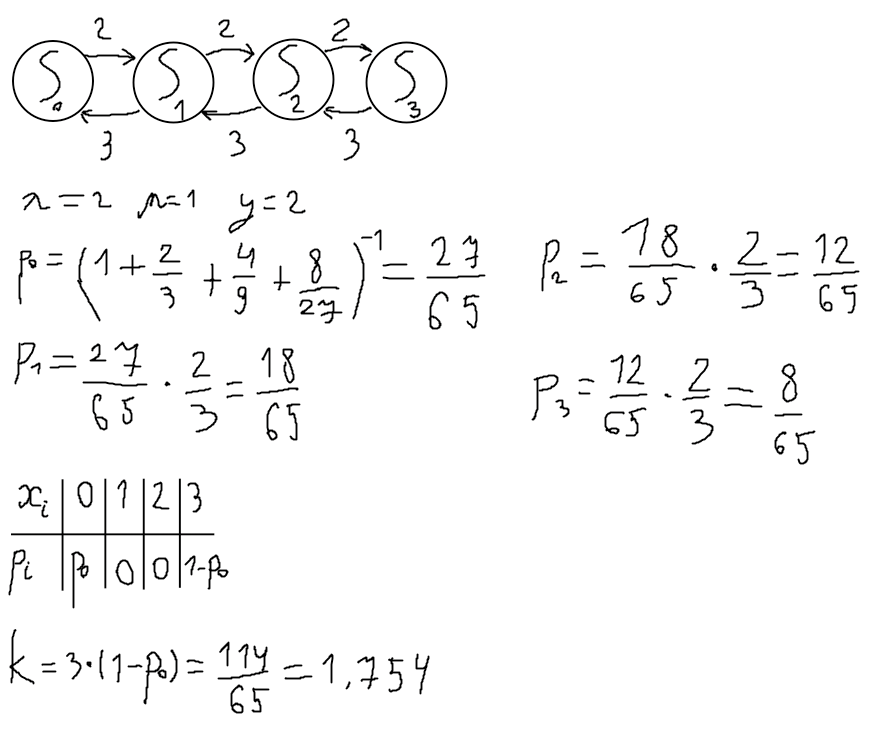 2 2 2
S₀ S₁ S₂ S₃
3 3 3
λ = 2 μ = 1 y = 2
p₀ = (1 + 2/3 + 4/9 + 8/27)⁻¹ = 27/65
p₂ = 18/65 · 2/3 = 12/65
p₁ = 27/65 · 2/3 = 18/65
p₃ = 12/65 · 2/3 = 8/65
xᵢ | 0 | 1 | 2 | 3
pᵢ | p₀ | 0 | 0 | 1-p₀
k = 3·(1-p₀) = 114/65 = 1,754